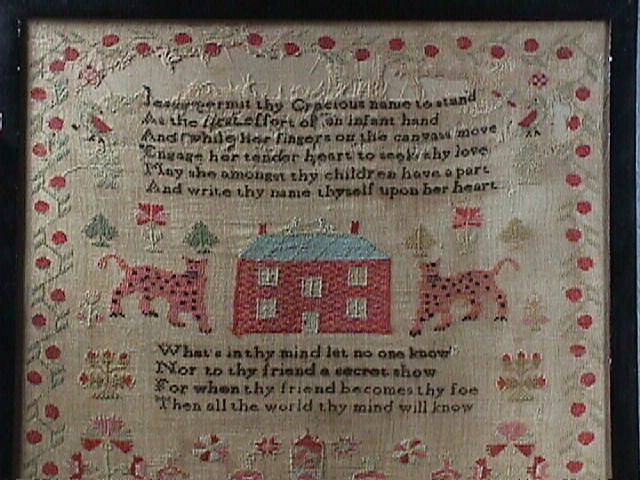 Jesus permit thy Gracious name to stand
As the first effort of an infant hand
And while her fingers on the canvass move
Engage her tender heart to seek thy love
May she amongst thy children have a part
And write thy name thyself upon her heart
What's in thy mind let no one know
Nor to thy friend a secret show
For when thy friend becomes thy foe
Then all the world thy mind will know